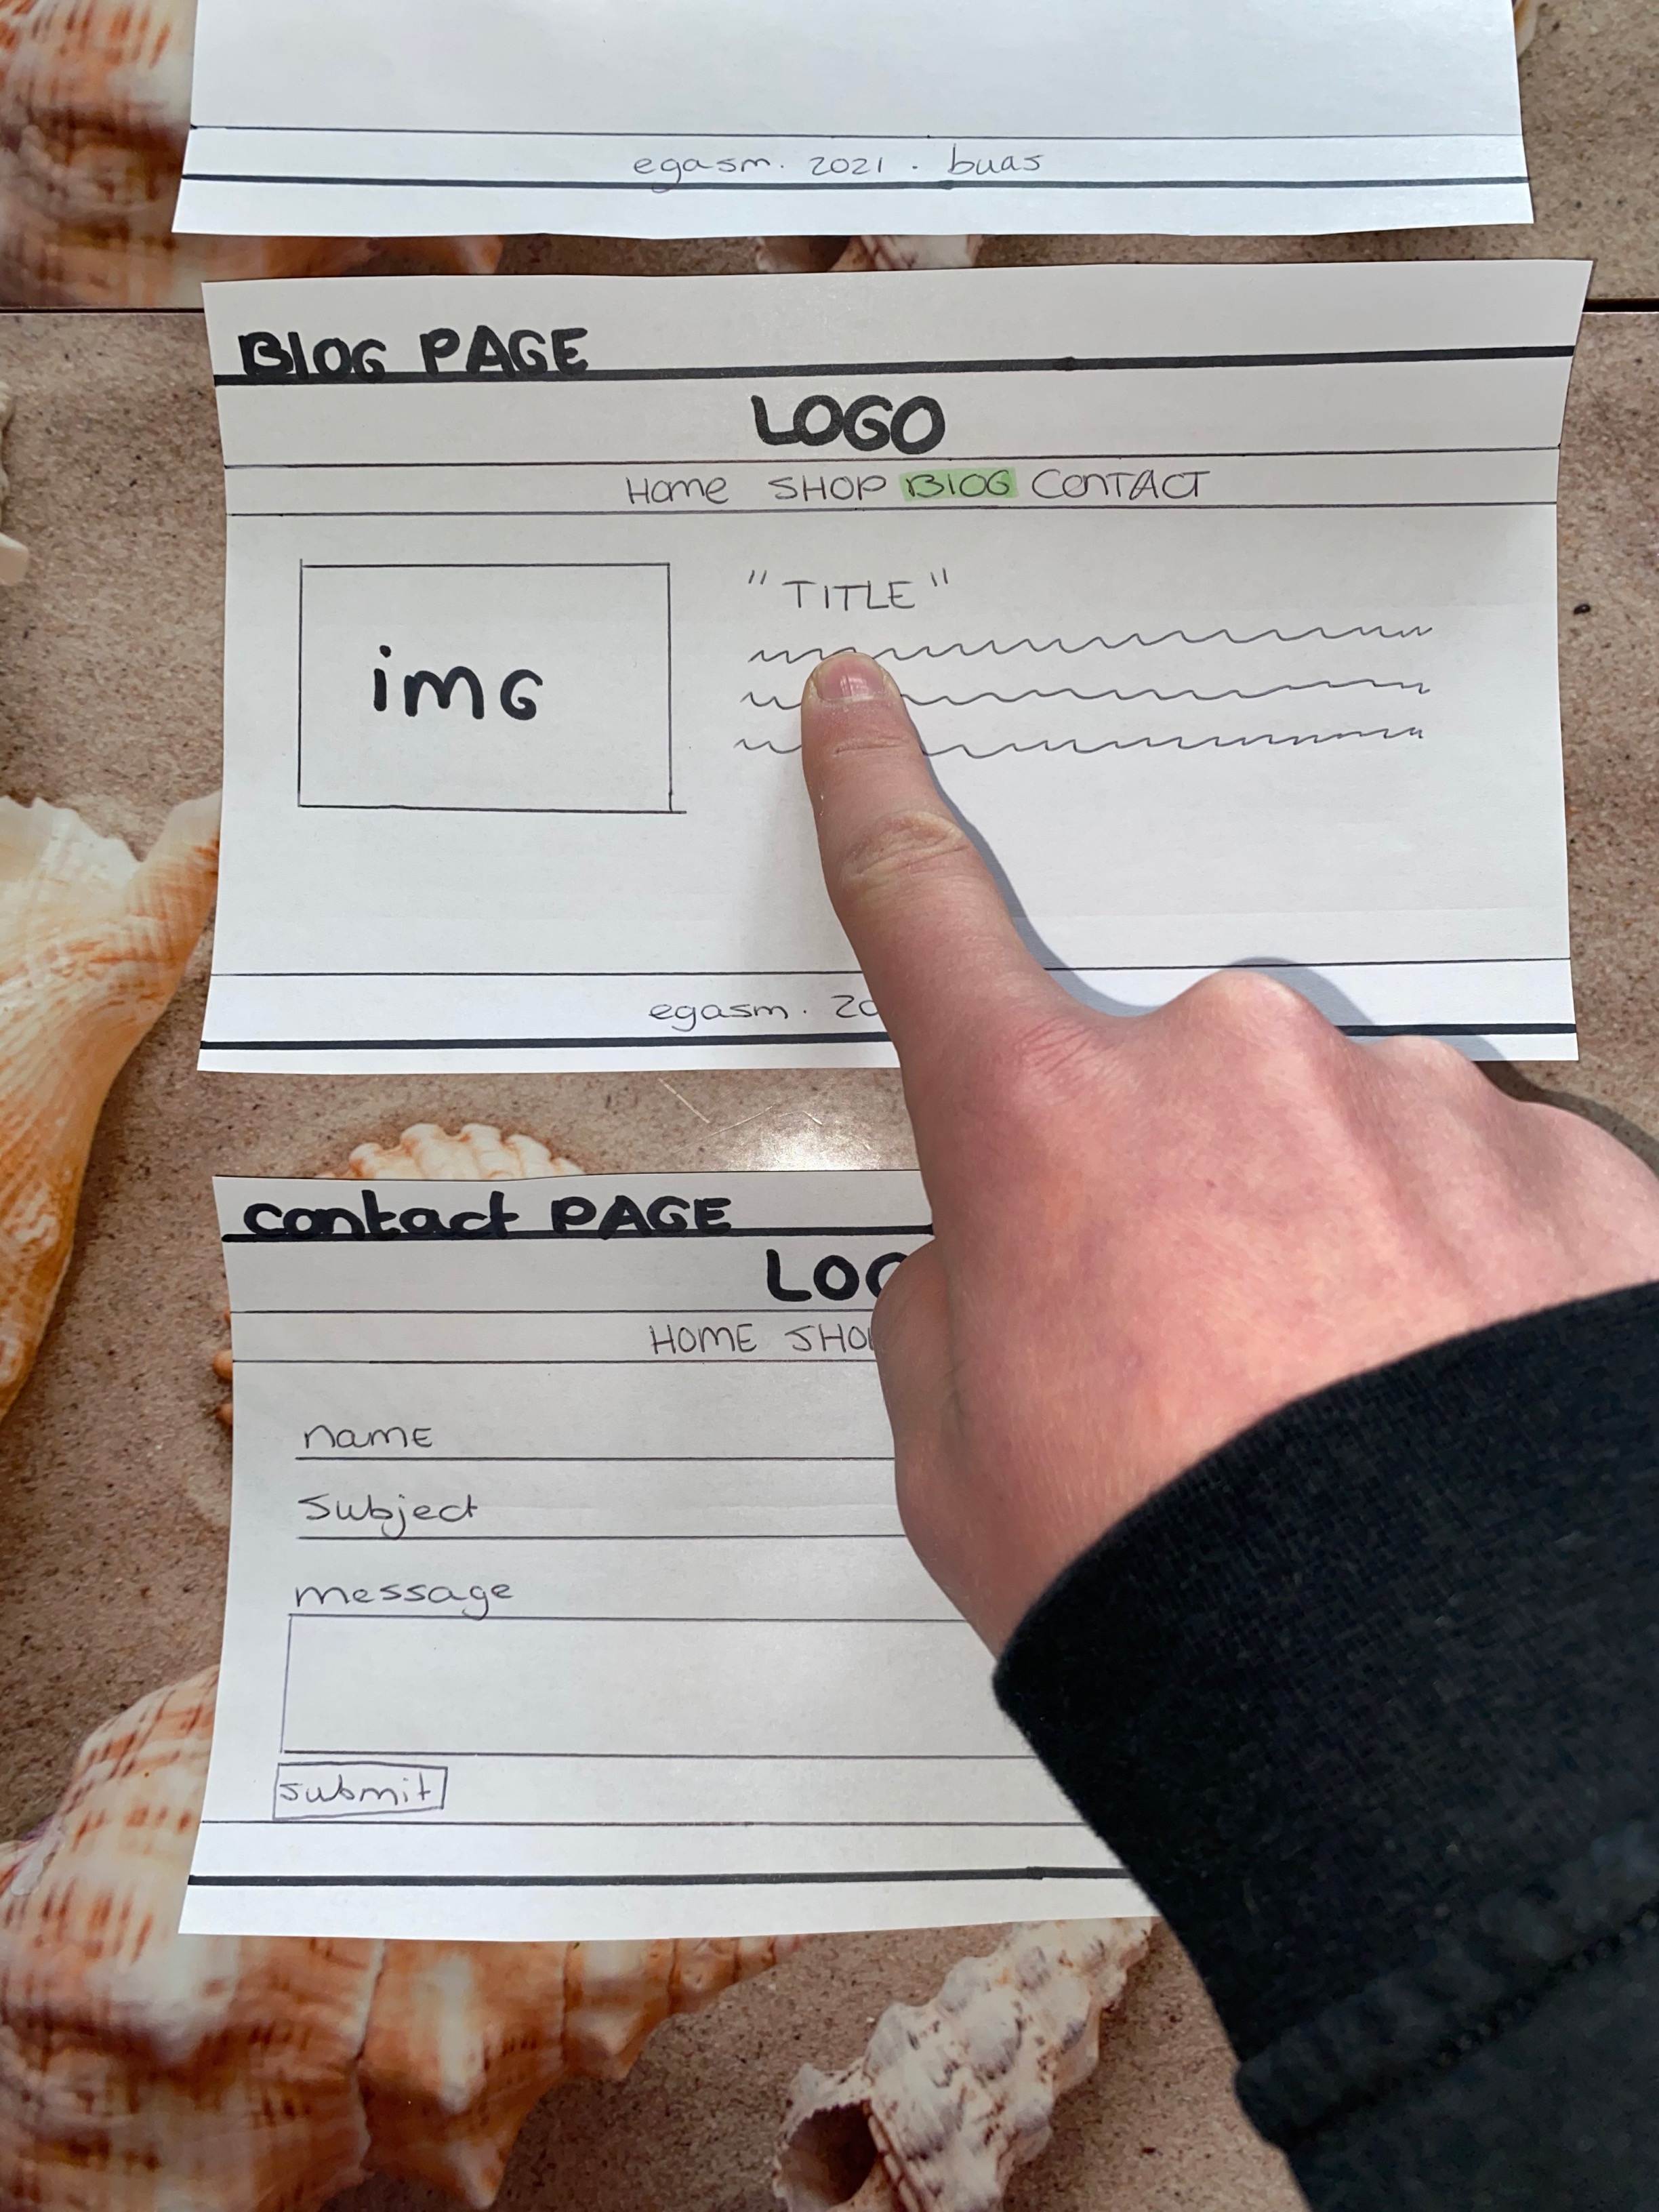 egasm. 2021 . buas
Blog PAGE
LOGO
Home SHOP BlOG CONTACT
img
"TITLE"
egasm.
contact PAGE
HOME
name
Subject
message
submit